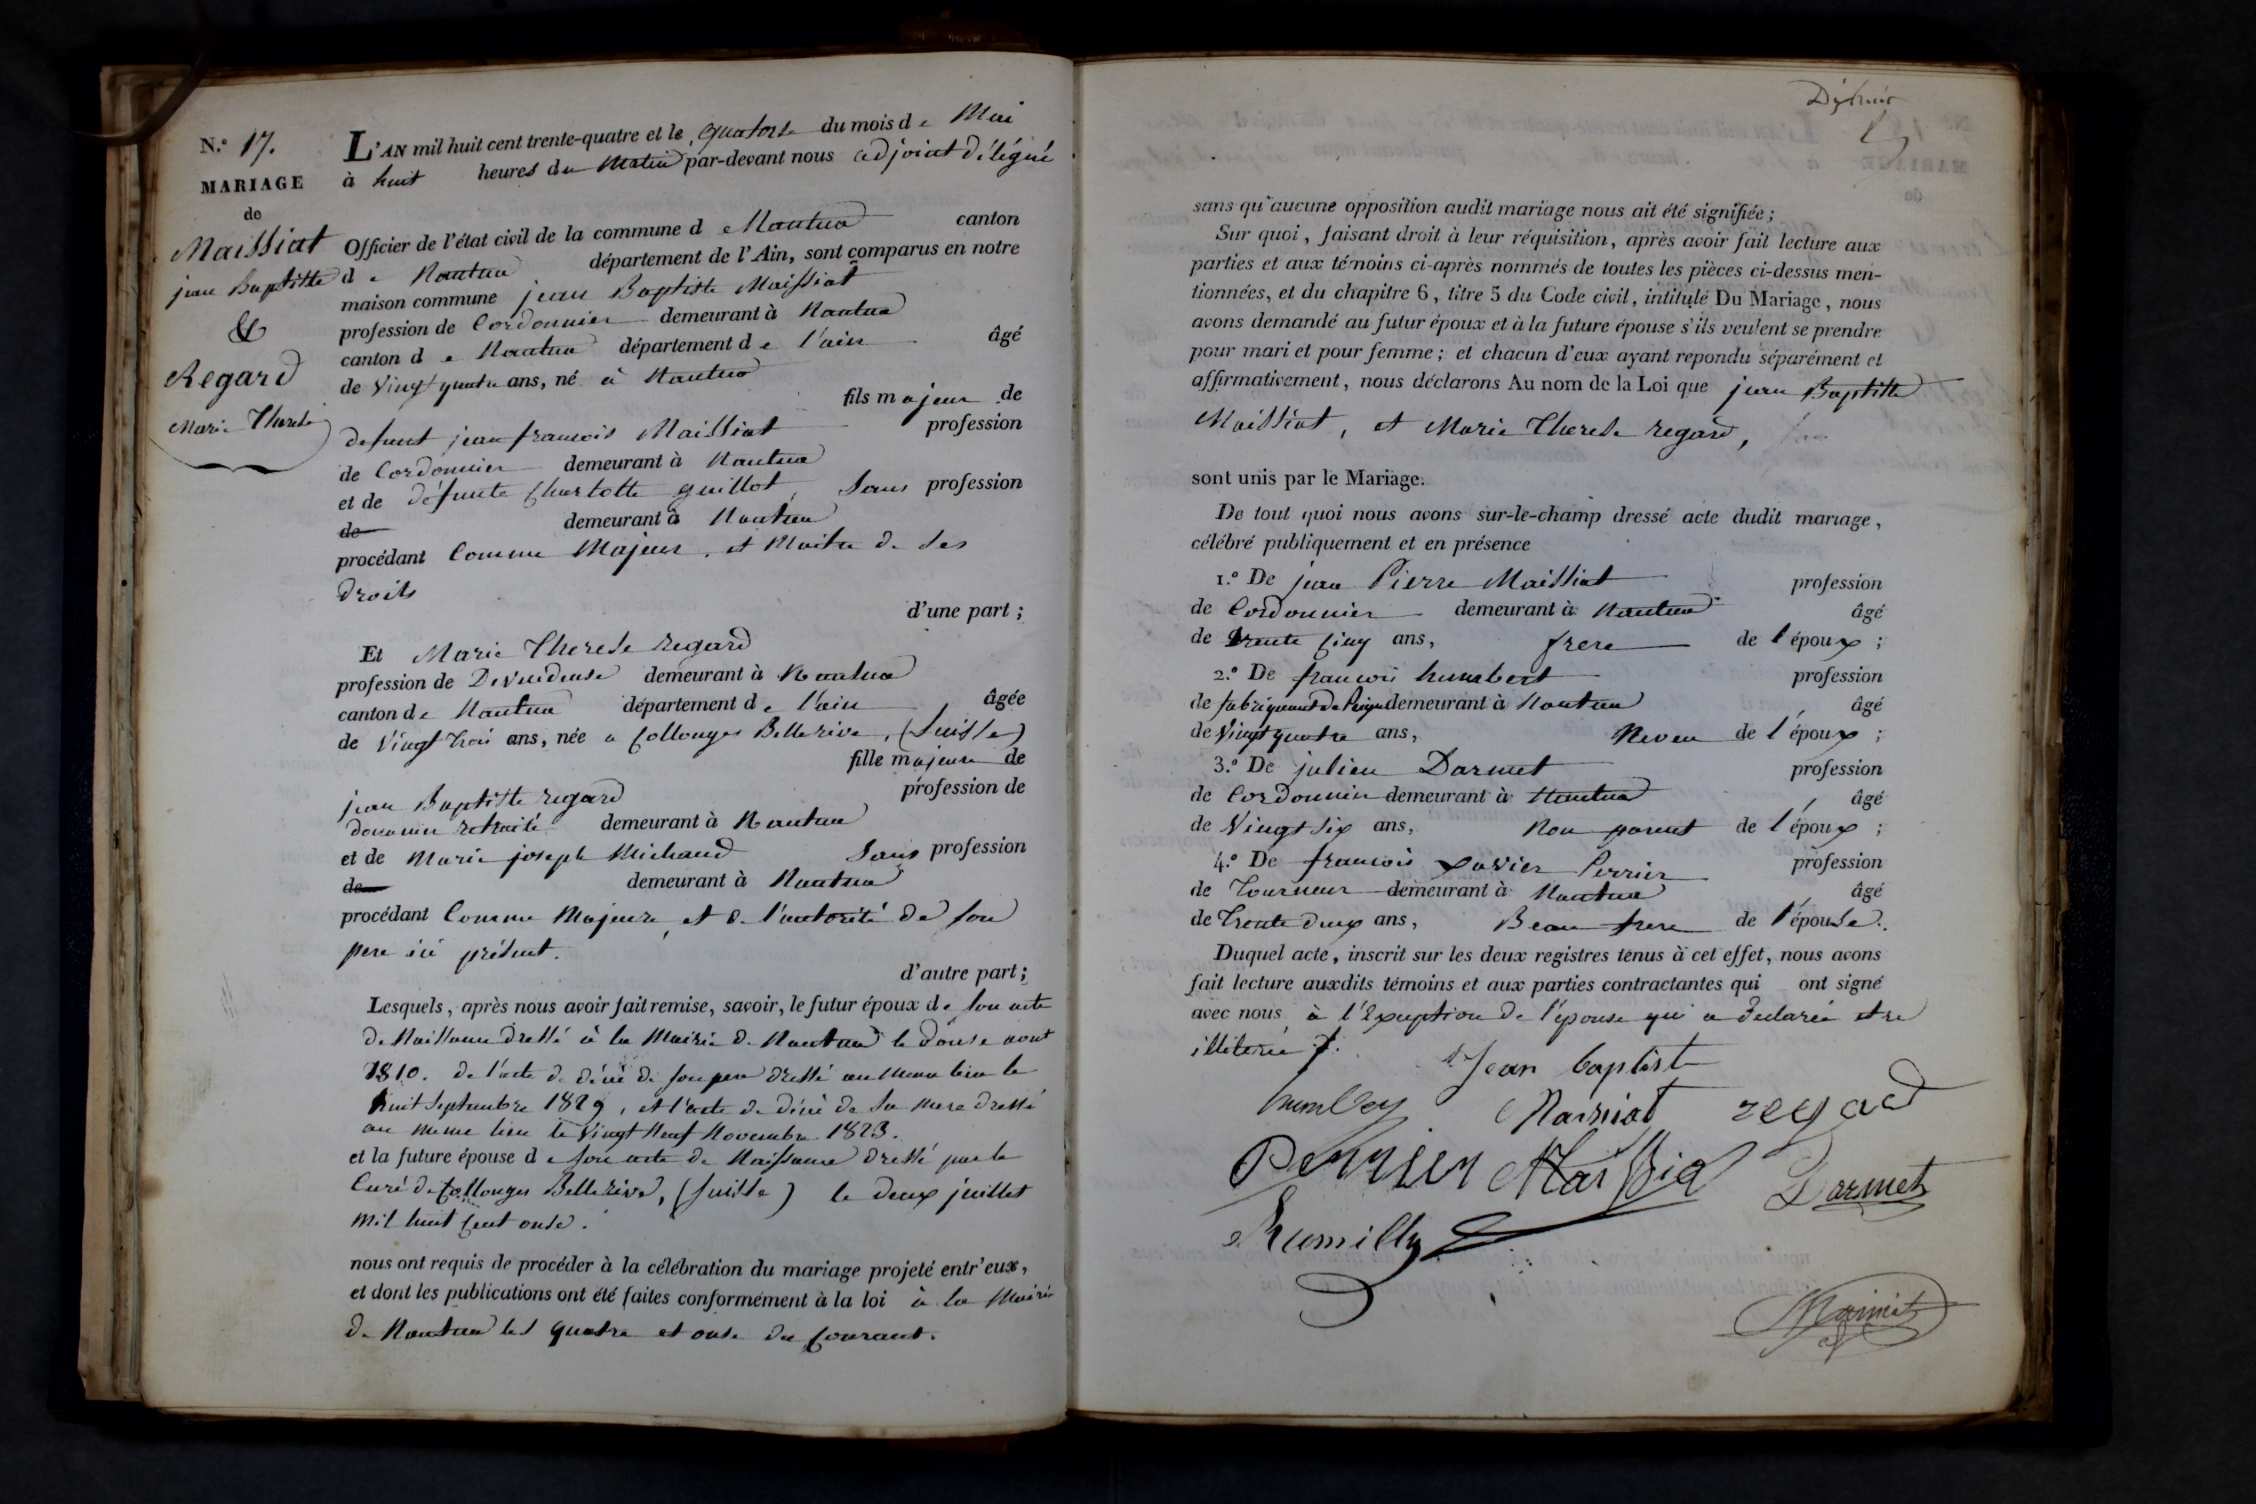 N.° 17.
MARIAGE
de
Maissiat
jean Baptiste
&
Regard
Marie Therese
L'AN mil huit cent trente-quatre et le quatorse du mois de Mai
à huit heures du Matin par-devant nous adjoint délégué
Officier de l'état civil de la commune de Nantua canton
de Nantua département de l'Ain, sont comparus en notre
maison commune jean Baptiste Maissiat
profession de Cordonnier demeurant à Nantua
canton de Nantua département de l'ain âgé
de Vingt quatre ans, né à Nantua
fils majeur de
defunt jean francois Maissiat profession
de Cordonnier demeurant à Nantua
et de défunte Charlotte guillot, Sans profession
de demeurant à Nantua
procédant Comme Majeur, et Maitre de ses
droits
d'une part ;
Et Marie Therese regard
profession de Devideuse demeurant à Nantua
canton de Nantua département de l'ain âgée
de Vingt trois ans, née a Collonges Bellerive, (Suisse)
fille majeure de
jean Baptiste regard profession de
douanier retraité demeurant à Nantua
et de Marie joseph Michaud Sans profession
de demeurant à Nantua
procédant Comme Majeure, et de l'autorité de son
pere ici présent.
d'autre part ;
Lesquels, après nous avoir fait remise, savoir, le futur époux de son acte
de Naissance dressé à la Mairie de Nantua le douse aout
1810. de l'acte de décé de son pere dressé au meme lieu le
huit Septembre 1829, et l'acte de décé de sa mere dressé
au meme lieu le Vingt Neuf Novembre 1823.
et la future épouse de son acte de Naissance dressé par le
Curé de Collonges Bellerive, (Suisse) le deux juillet
mil huit Cent onse.
nous ont requis de procéder à la célébration du mariage projeté entr'eux,
et dont les publications ont été faites conformément à la loi à la Mairie
de Nantua les quatre et onse du Courant.
sans qu'aucune opposition audit mariage nous ait été signifiée ;
Sur quoi, faisant droit à leur réquisition, après avoir fait lecture aux
parties et aux témoins ci-après nommés de toutes les pièces ci-dessus men-
tionnées, et du chapitre 6, titre 5 du Code civil, intitulé Du Mariage, nous
avons demandé au futur époux et à la future épouse s'ils veulent se prendre
pour mari et pour femme ; et chacun d'eux ayant repondu séparément et
affirmativement, nous déclarons Au nom de la Loi que jean Baptiste
Maissiat, et Marie Therese regard,
sont unis par le Mariage.
De tout quoi nous avons sur-le-champ dressé acte dudit mariage,
célébré publiquement et en présence
1.° De jean Pierre Maissiat profession
de Cordonnier demeurant à Nantua âgé
de trente Cinq ans, frere de l'époux ;
2.° De francois humbert profession
de fabriquant de Peigne demeurant à Nantua âgé
de Vingt quatre ans, Neveu de l'époux ;
3.° De julien Darmet profession
de Cordonnier demeurant à Nantua âgé
de Vingt Six ans, Non parent de l'époux ;
4.° De francois xavier Perrier profession
de Tourneur demeurant à Nantua âgé
de Trente deux ans, Beau frere de l'épouse.
Duquel acte, inscrit sur les deux registres tenus à cet effet, nous avons
fait lecture auxdits témoins et aux parties contractantes qui ont signé
avec nous à l'Exception de l'épouse qui a déclarée etre
illiterée
Jean baptiste
humbert Maissiat regard
Perrier Maissiat Darmet
Rumilly